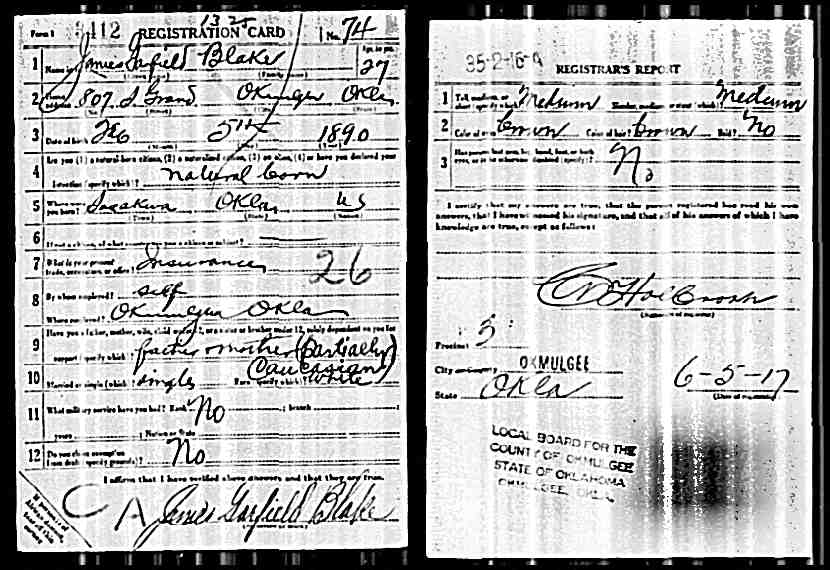 Form 1 3112 REGISTRATION CARD No. 74
13 25
1 James Garfield Blake 27
2 807 S Grand Okmulgee Okla
3 Date of birth Feb 5th 1890
4 Are you (1) a natural-born citizen, (2) a naturalized citizen, (3) an alien, (4) or have you declared your
intention (specify which)? natural born
5 Where were you born? Sasakwa Okla U S
(Town) (State) (Nation)
6 If not a citizen, of what country are you a citizen or subject?
7 What is your present trade, occupation, or office? Insurance 26
8 By whom employed? self
Where employed? Okmulgee Okla
9 Have you a father, mother, wife, child under 12, or a sister or brother under 12, solely dependent on you for
support (specify which)? father & mother (Partially)
10 Married or single (which)? single Race (specify which)? Caucasian White
11 What military service have you had? Rank No ; branch ;
years ; Nation or State
12 Do you claim exemption from draft (specify grounds)? No
I affirm that I have verified above answers and that they are true.
C A James Garfield Blake
35-2-16-A
REGISTRAR'S REPORT
1 Tall, medium, or short (specify which)? Medium Slender, medium, or stout (which)? Medium
2 Color of eyes? Brown Color of hair? Brown Bald? No
3 Has person lost arm, leg, hand, foot, or both eyes, or is he otherwise disabled (specify)? No
I certify that my answers are true, that the person registered has read his own
answers, that I have witnessed his signature, and that all of his answers of which I have
knowledge are true, except as follows:
Holbrook
(Signature of registrar)
Precinct 3
City or County OKMULGEE
State Okla 6-5-17
(Date of registration)
LOCAL BOARD FOR THE
COUNTY OF OKMULGEE
STATE OF OKLAHOMA
OKMULGEE, OKLA.